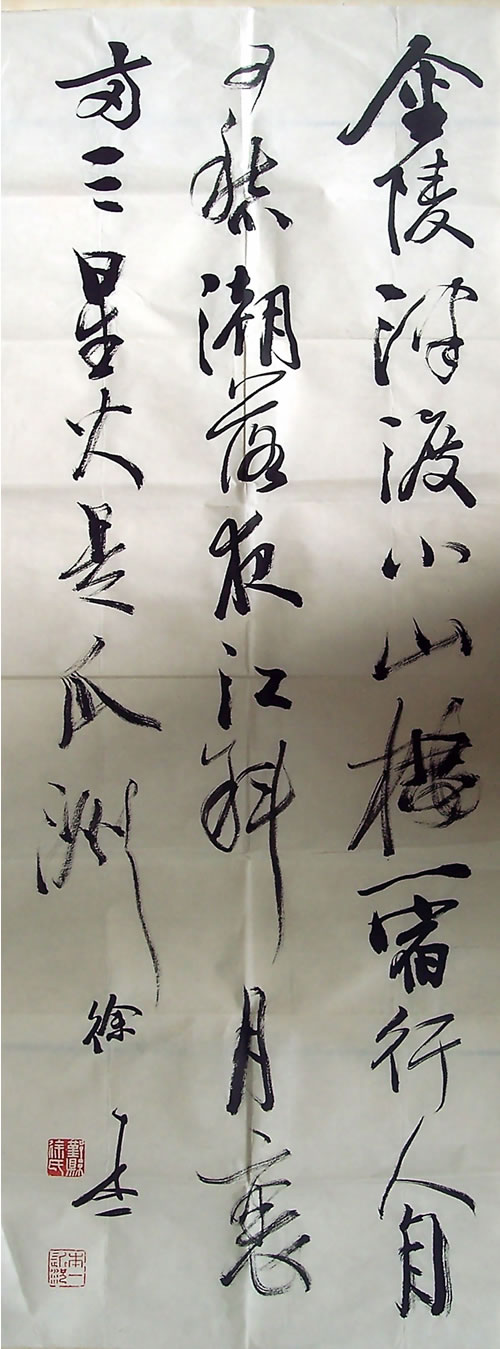 金陵津渡小山樓一宿行人自
可愁潮落夜江斜月裏
两三星火是瓜洲
徐